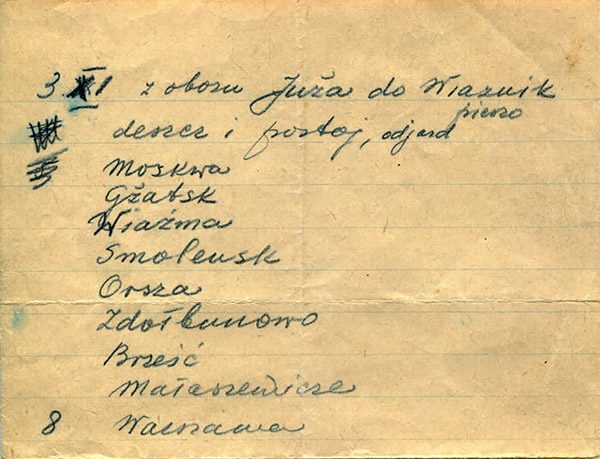 3. XI z obozu Juża do Wiaznik
pieszo
deszcz i postój, odjazd
Moskwa
Gżatsk
Wiaźma
Smoleńsk
Orsza
Zdołbunowo
Brześć
Małaszewicze
8 Warszawa